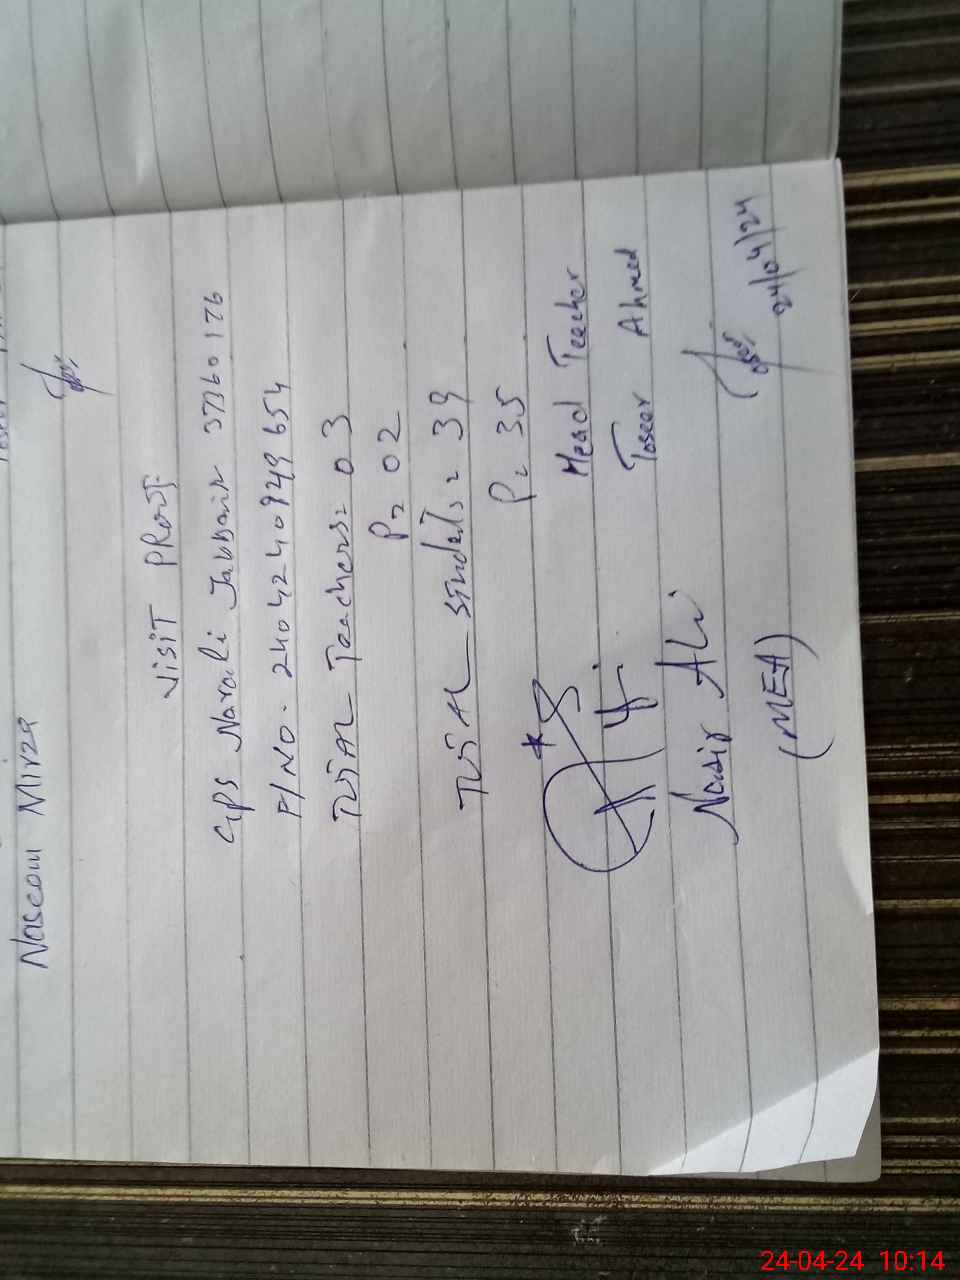 Naseem Mirza
VISIT PROOF
GPS Narali Jabbair 37360176
P/NO. 24042409249654
Total Teachers= 03
P= 02
Total Students= 39
P= 35
Head Teacher
Toseer Ahmed
Nasir Ali
24/04/24
(MEA)
24-04-24 10:14